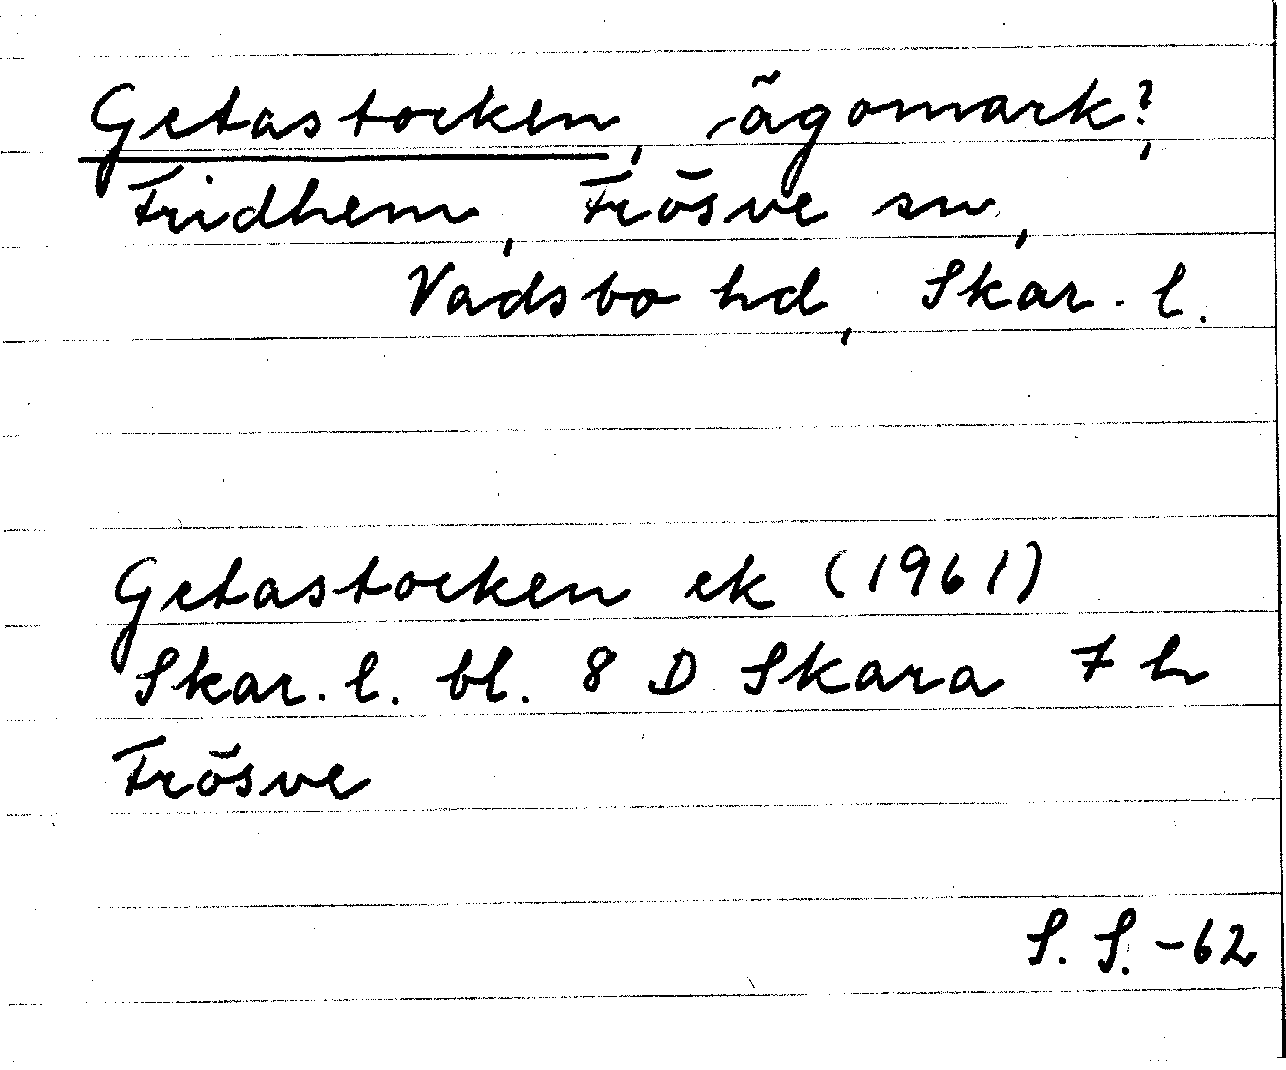 Getastocken, ägomark?,
Fridhem, Frösve sn,
Vadsbo hd, Skar. l.
Getastocken ek (1961)
Skar. l. bl. 8 D Skara 7 h
Frösve
S. S. -62